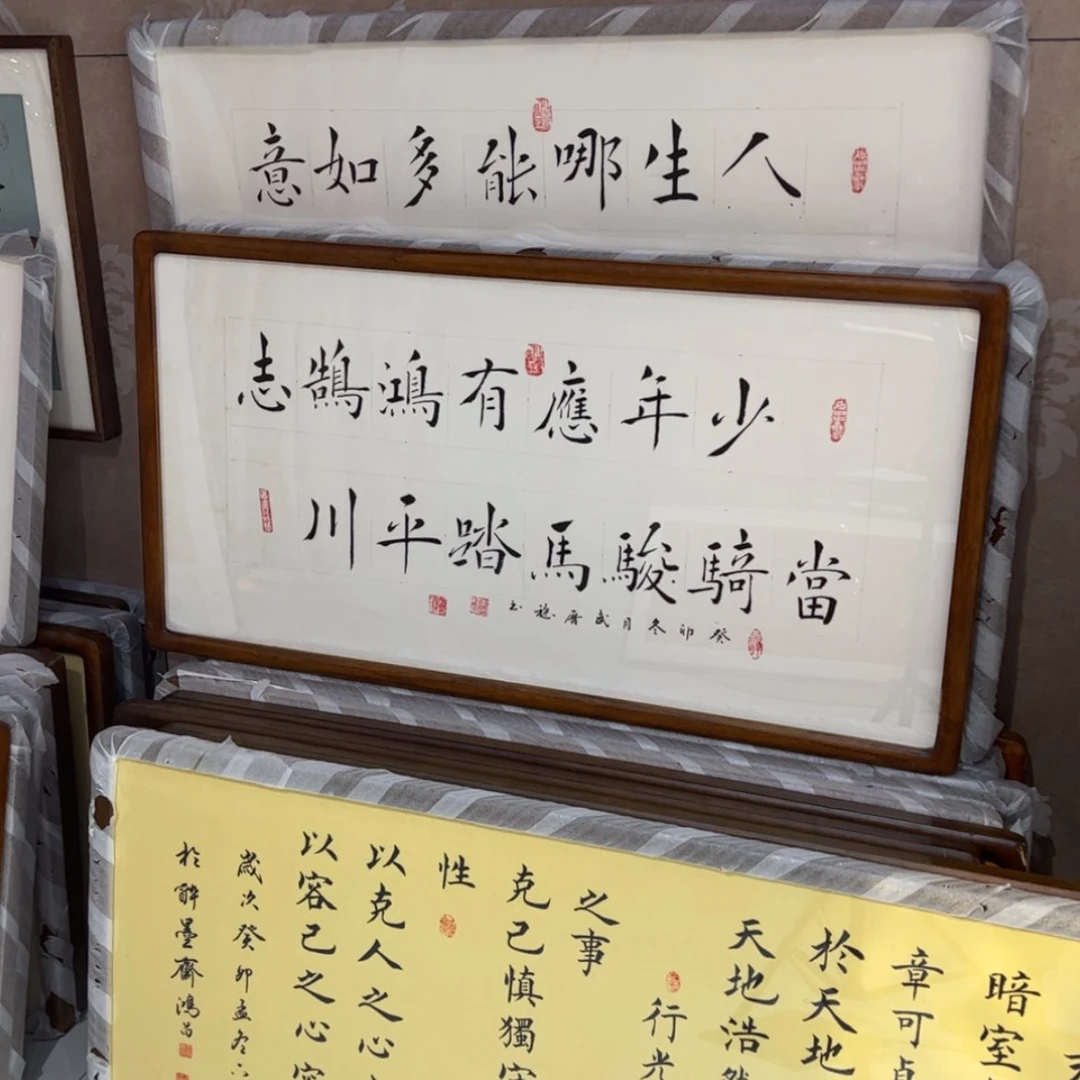 人生哪能多如意
少年應有鴻鵠志
當騎駿馬踏平川
癸卯冬月武
天
暗室
章可貞
於天地
天地浩然
行光
之事
克己慎獨守
性
以克人之心
以容己之心容
歲次癸卯孟冬
於醉墨齋鴻